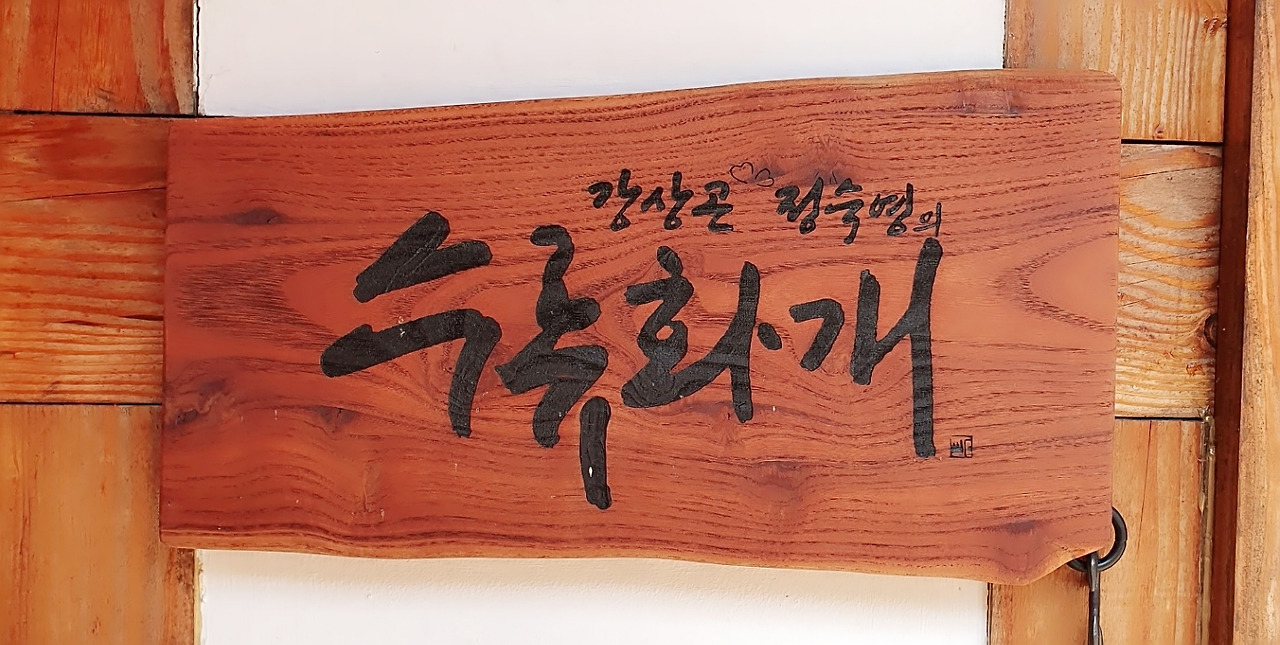 강상곤 정숙영의
수록화개